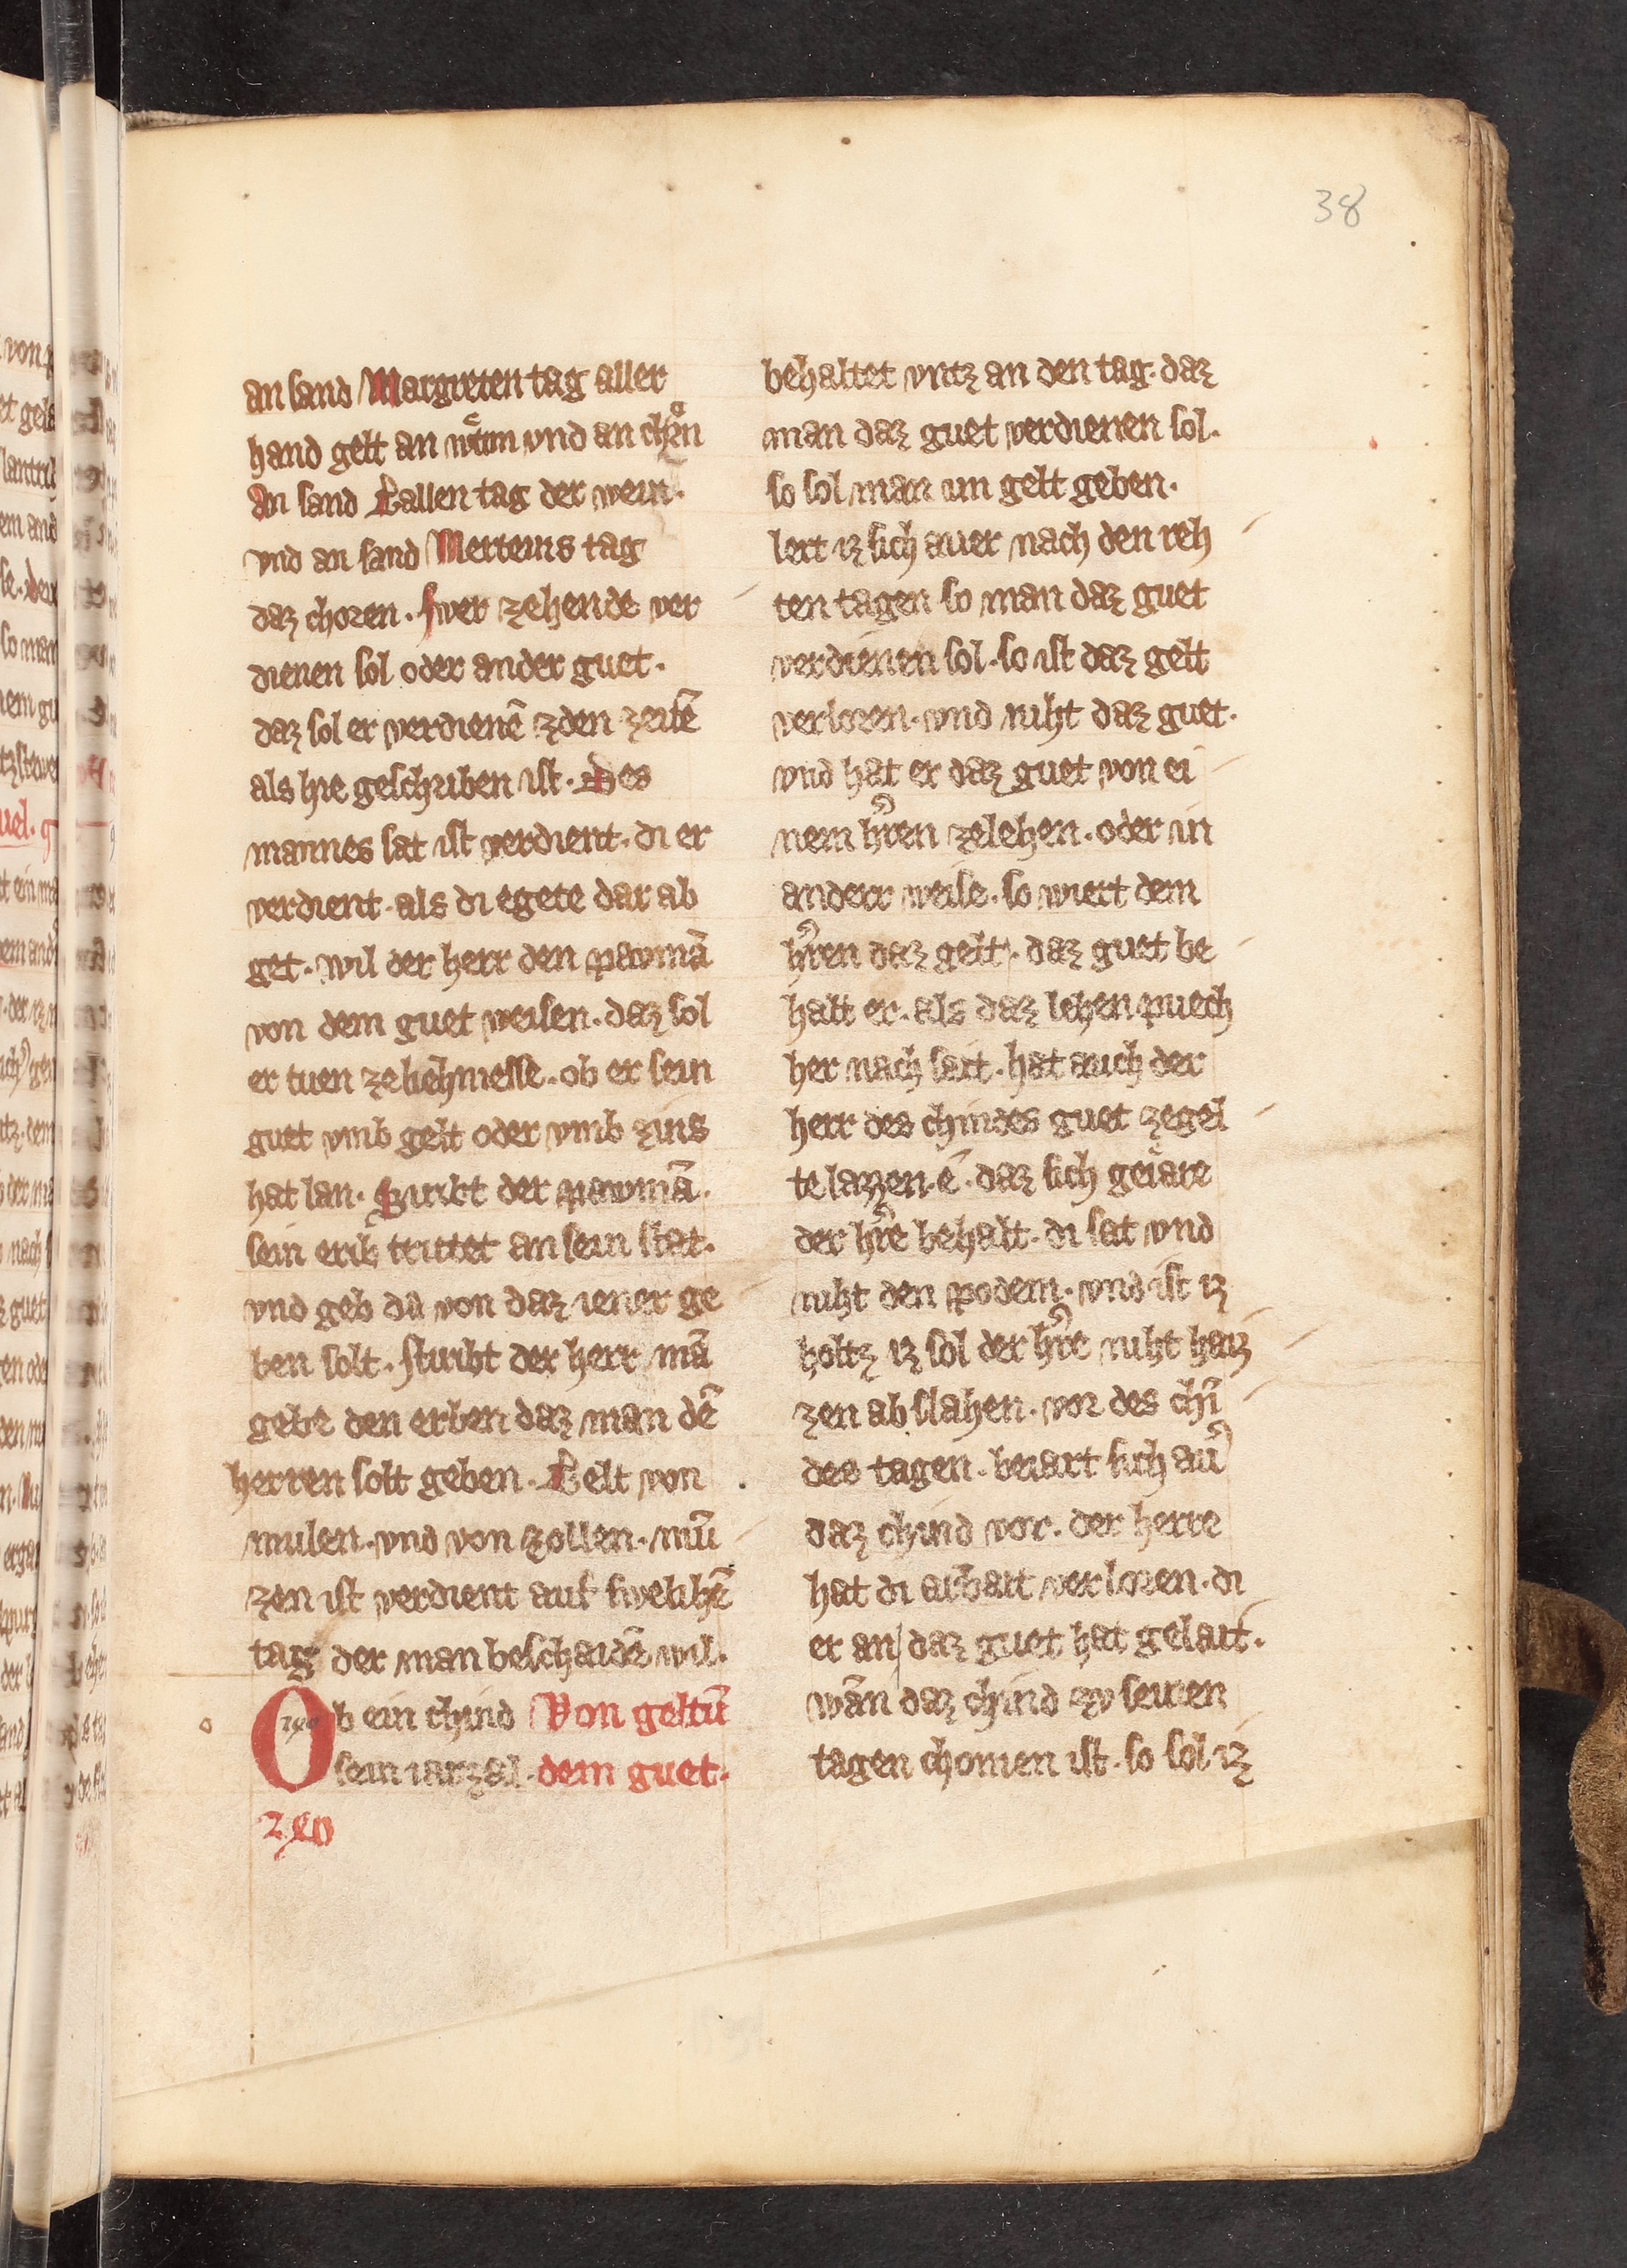 38
an sand Margreten tag aller
hand gelt an wͤtun vnd an chͤrn
An sand Gallen tag der wein.
vnd an sand Merteins tag
daz choren. swer zehende ver
dienen sol oder ander guet.
daz sol er verdienē zden zeitē
als hie geschriben ist. Des
mannes sat ist verdient. di er
verdient. als di egete dar ab
get. wil der herr den pawmā
von dem guet weisen. daz sol
er tuen ze liehmesse. ob er sein
guet vmb gelt oder vmb zins
hat lan. Stirbt der pawmā.
sein erib trittet an sein stat.
vnd geb da von daz iener ge
ben solt. stiribt der herr mā
gebe den erben daz man dē
herren solt geben. Gelt von
mulen. vnd von zollen. mū
zen ist verdient auf swelihē
tag der man beschaidē wil.
Ob ein chind Von geltū
sein iarzal. dem guet.
behaltet vntz an den tag. daz
man daz guet verdienen sol.
so sol man im gelt geben.
lert iz sich auer nach den reh
ten tagen so man daz guet
verdienen sol. so ist daz gelt
verloren. vnd niht daz guet.
vnd hat er daz guet von ei
nem hͬren zelehen. oder in
anderr weise. so wiert dem
hͬren daz gelt. daz guet be
halt er. als daz lehen puech
her nach sait. hat auch der
herr des chindes guet zegel
te lazzen. ē. daz sich geiare
der hͬre behalt. di sat vnd
niht den podem. vnd ist iz
holtz iz sol der hͬre niht haiz
zen ab slahen. vor des chī
des tagen. beiart sich auͬ
daz chind vor. der herre
hat di arbait verloren. di
er an daz guet hat gelait.
wān daz chind zv seinen
tagen chomen ist. so sol iz